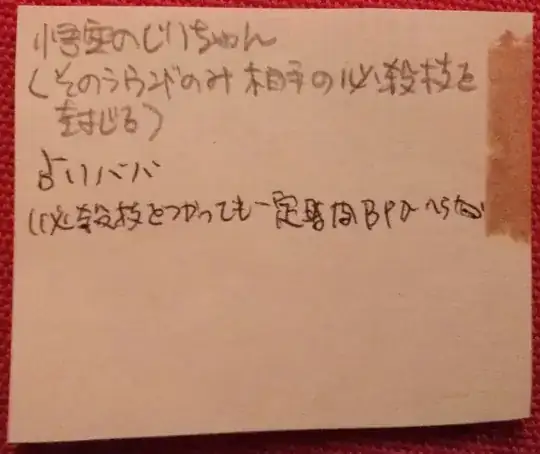 悟空のじいちゃん
(そのラウンドのみ相手の必殺技を
封じる)
占いババ
(必殺技をつかっても一定 BPがへらない